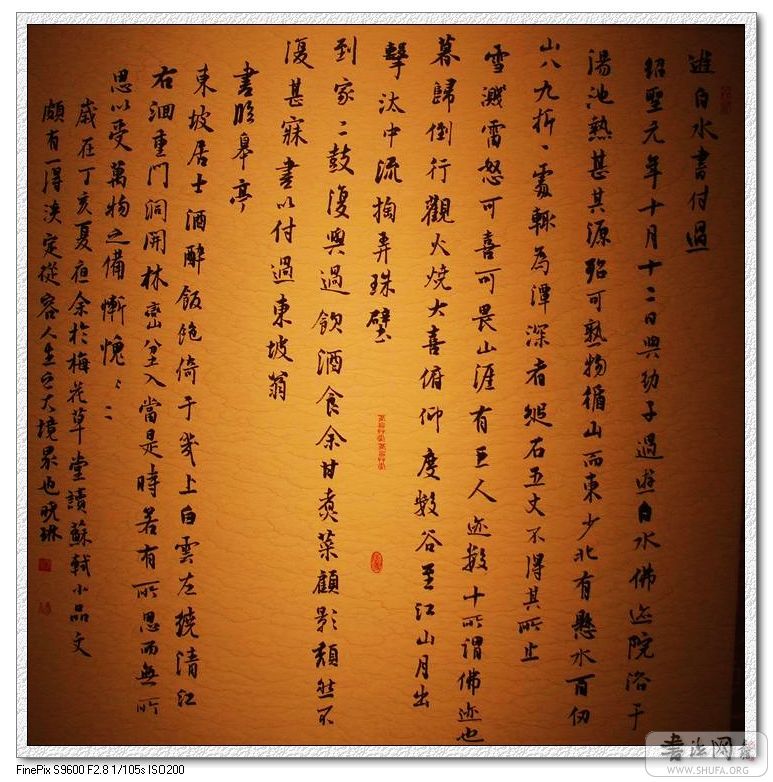 遊白水書付過
紹聖元年十月十二日與幼子過遊白水佛迹院浴于
湯池熱甚其源殆可熟物循山而東少北有懸水百仞
山八九折、處輒為潭深者縋石五丈不得其所止
雪濺雷怒可喜可畏山涯有巨人迹數十所謂佛迹也
暮歸倒行觀火燒大喜俯仰度數谷至江山月出
擊汰中流掬弄珠璧
到家二鼓復與過飲酒食余甘煮菜顧影頹然不
復甚寐書以付過東坡翁
書臨皋亭
東坡居士酒醉飯飽倚于几上白雲左繞清江
右洄重門洞開林巒坌入當是時若有所思而無所
思以受萬物之備慚愧、、
歲在丁亥夏夜余於梅花草堂讀蘇軾小品文
頗有一得淡定從容人生之大境界也曉琳
書法网
WWW.SHUFA.ORG
FinePix S9600 F2.8 1/105s ISO200